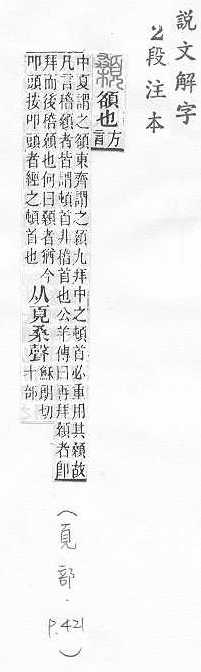 說文解字
2段注本
顙 頟也 方言
中夏謂之頟東齊謂之顙九拜中之頓首必重用其顙故
凡言稽顙者皆謂頓首非稽首也公羊傳曰再拜顙者卽
拜而後稽顙也何曰顙者猶今
叩頭按叩頭者經之頓首也
从頁桑聲 穌朗切
十部
(頁部.P.421)